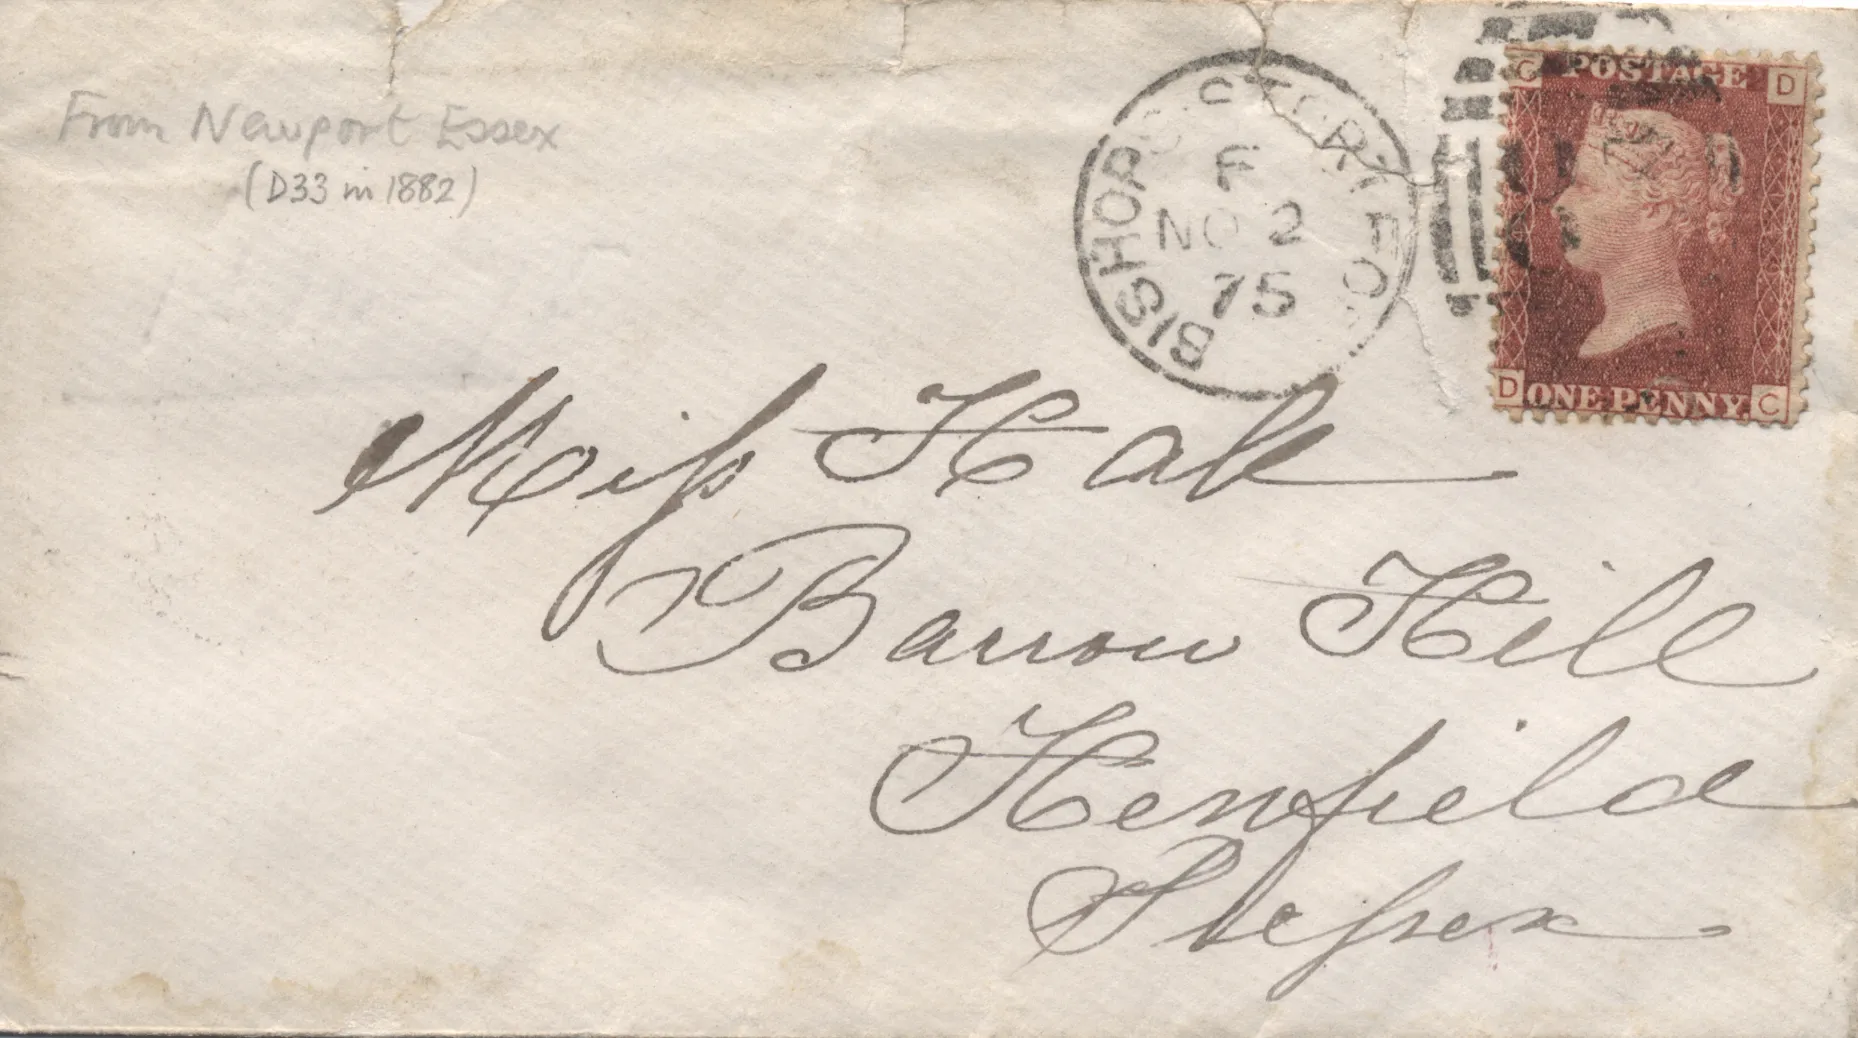 From Newport Essex
(D33 in 1882)
BISHOPS STORTFO
F
NO 2
75
C POSTAGE D
D ONE PENNY C
Miss Hall
Barrow Hill
Henfield
Sussex